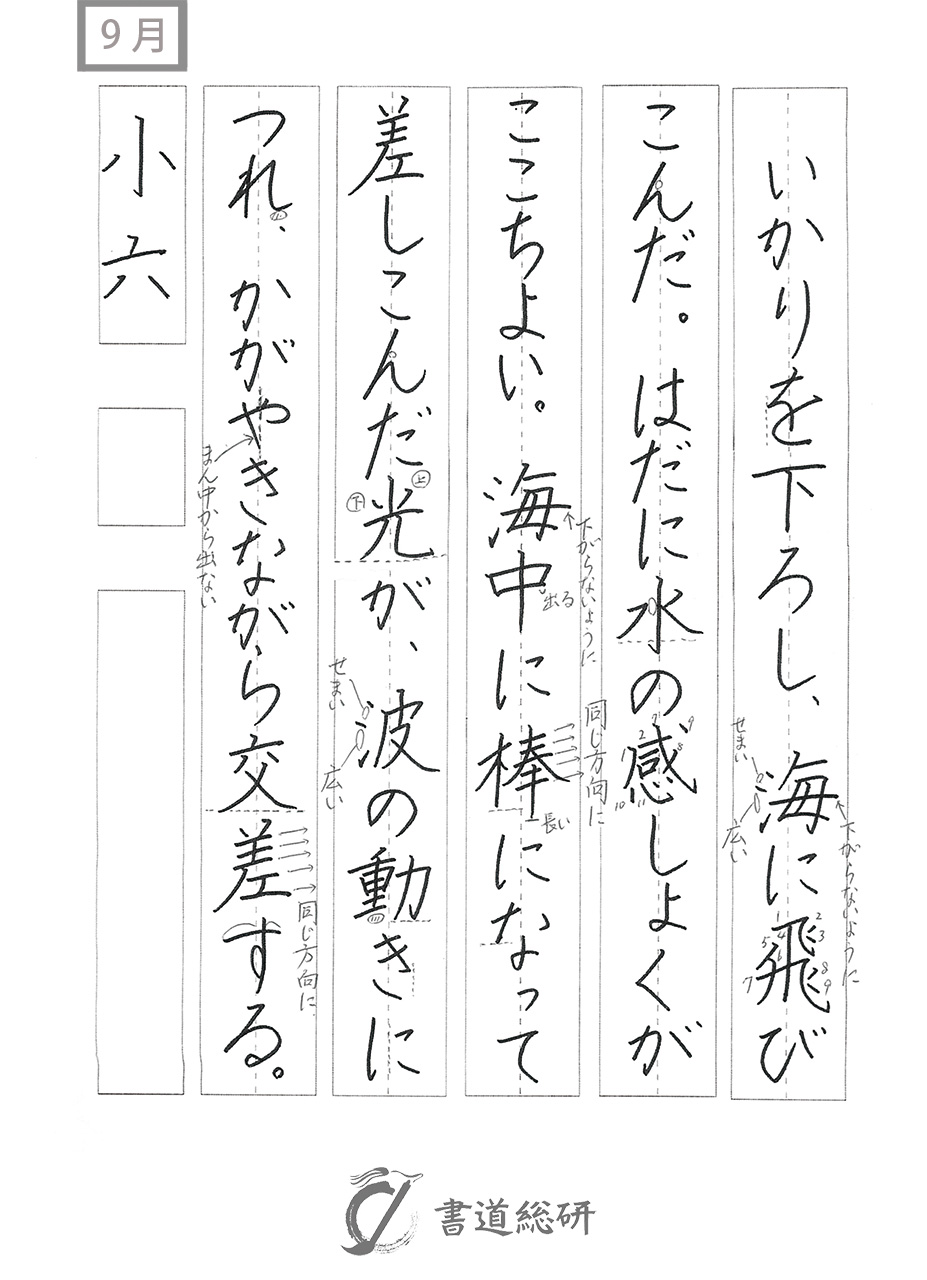 9月
いかりを下ろし、海に飛び
こんだ。はだに水の感しょくが
ここちよい。海中に棒になって
差しこんだ光が、波の動きに
つれ、かがやきながら交差する。
小六
せまい
広い
下がらないように
1
2
3
4
5
6
7
8
9
7
9
2
8
10
11
下がらないように
出る
同じ方向に
長い
上
下
せまい
広い
まん中から出ない
同じ方向に
書道総研